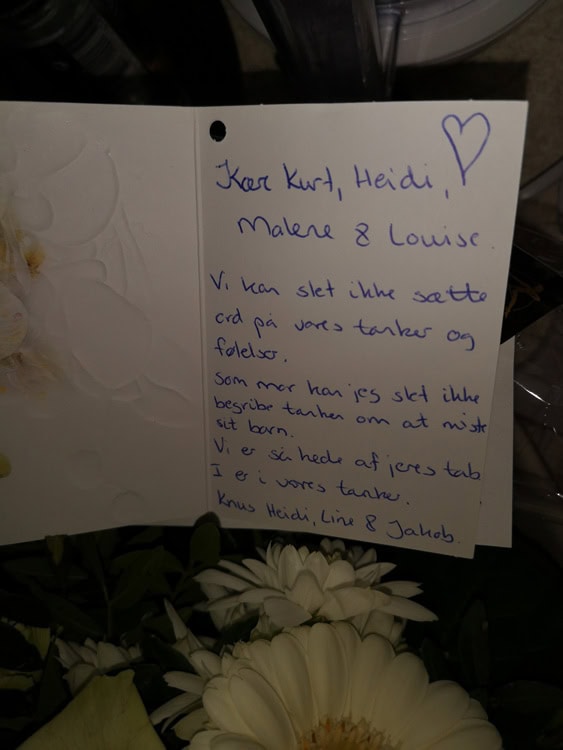 Kær Kurt, Heidi,
Malene & Louise.
Vi kan slet ikke sætte
ord på vores tanker og
følelser.
Som mor kan jeg slet ikke
begribe tanken om at miste
sit barn.
Vi er så kede af jeres tab
I er i vores tanker.
Knus Heidi, Line & Jakob.